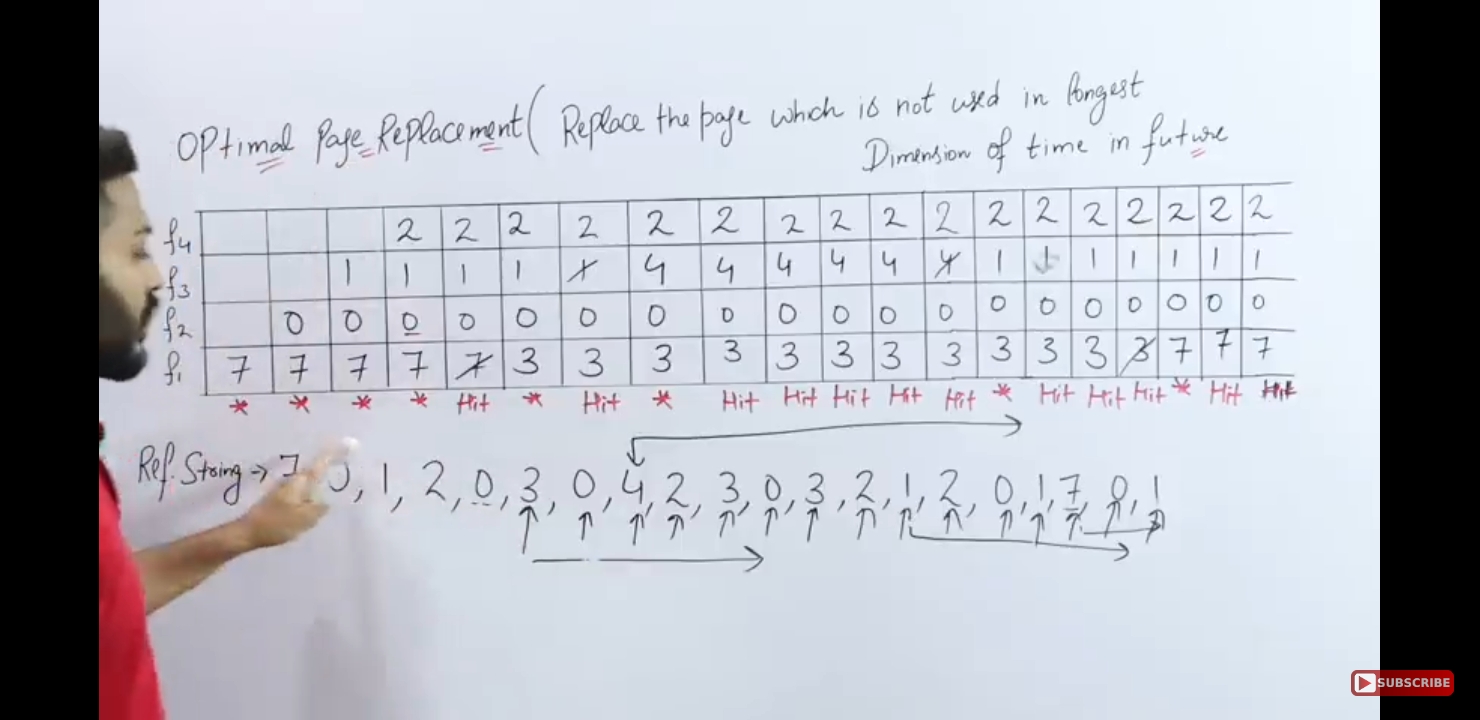 OPtimal Page Replacement ( Replace the page which is not used in longest
Dimension of time in future
f4 2 2 2 2 2 2 2 2 2 2 2 2 2 2 2 2 2
f3 1 1 1 1 1 4 4 4 4 4 4 1 1 1 1 1 1 1
f2 0 0 0 0 0 0 0 0 0 0 0 0 0 0 0 0 0 0 0
f1 7 7 7 7 7 3 3 3 3 3 3 3 3 3 3 3 3 7 7 7
* * * * Hit * Hit * Hit Hit Hit Hit Hit * Hit Hit Hit * Hit Hit
Ref. String → 7, 0, 1, 2, 0, 3, 0, 4, 2, 3, 0, 3, 2, 1, 2, 0, 1, 7, 0, 1
SUBSCRIBE